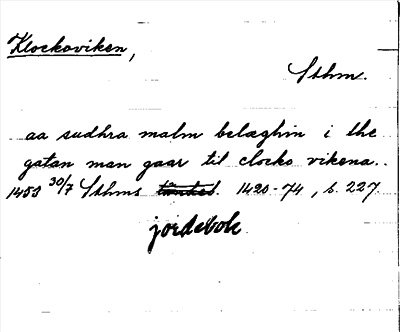 Klockoviken,
Sthm.
aa sudhra malm belæghin i the
gatan man gaar til clocko vikena.
1453 30/7 Sthms 1420-74, s. 227
jordebok